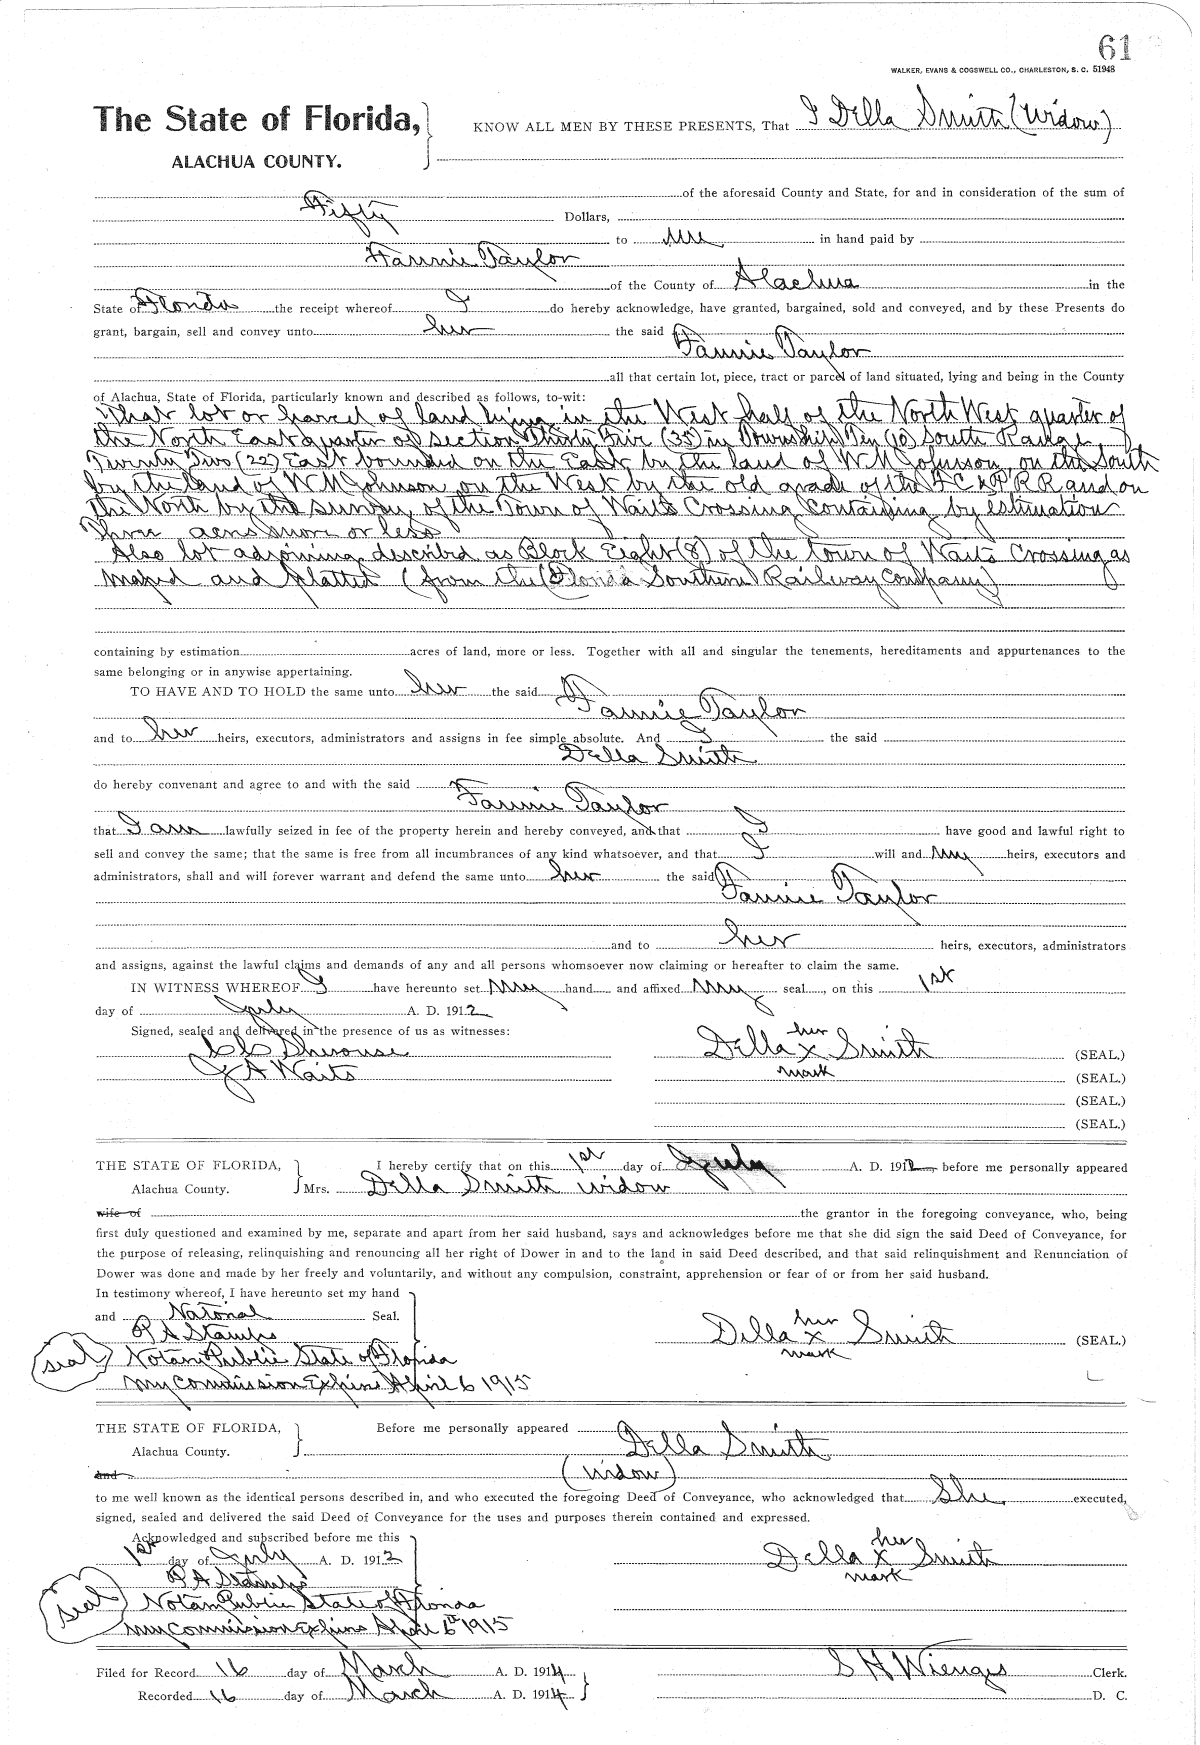 61
WALKER, EVANS & COGSWELL CO., CHARLESTON, S. C. 51948
The State of Florida, KNOW ALL MEN BY THESE PRESENTS, That I Della Smith (Widow)
ALACHUA COUNTY.
of the aforesaid County and State, for and in consideration of the sum of
Fifty Dollars,
to me in hand paid by
Fannie Taylor
of the County of Alachua in the
State of Florida the receipt whereof I do hereby acknowledge, have granted, bargained, sold and conveyed, and by these Presents do
grant, bargain, sell and convey unto her the said
Fannie Taylor
all that certain lot, piece, tract or parcel of land situated, lying and being in the County
of Alachua, State of Florida, particularly known and described as follows, to-wit:
That lot or parcel of land lying in the West half of the North West quarter of
the North East quarter of section Thirty Five (35) in Township Ten (10) South Range
Twenty Two (22) East bounded on the East by the land of W M Johnson, on the South
by the land of W M Johnson, on the West by the old grade of the F C & P R R and on
the North by the survey of the Town of Waits Crossing containing by estimation
Three acres more or less
Also lot adjoining described as Block Eight (8) of the town of Waits Crossing as
maped and platted (from the (Florida Southern) Railway Company)
containing by estimation acres of land, more or less. Together with all and singular the tenements, hereditaments and appurtenances to the
same belonging or in anywise appertaining.
TO HAVE AND TO HOLD the same unto her the said
Fannie Taylor
and to her heirs, executors, administrators and assigns in fee simple absolute. And I the said
Della Smith
do hereby convenant and agree to and with the said
Fannie Taylor
that I am lawfully seized in fee of the property herein and hereby conveyed, and that I have good and lawful right to
sell and convey the same; that the same is free from all incumbrances of any kind whatsoever, and that I will and my heirs, executors and
administrators, shall and will forever warrant and defend the same unto her the said
Fannie Taylor
and to her heirs, executors, administrators
and assigns, against the lawful claims and demands of any and all persons whomsoever now claiming or hereafter to claim the same.
IN WITNESS WHEREOF I have hereunto set my hand and affixed my seal, on this 1st
day of July A. D. 1912
Signed, sealed and delivered in the presence of us as witnesses:
C C Sherouse
J A Waits
her
Della x Smith (SEAL.)
mark (SEAL.)
(SEAL.)
(SEAL.)
THE STATE OF FLORIDA, I hereby certify that on this 1st day of July A. D. 1912 before me personally appeared
Alachua County. Mrs. Della Smith widow
wife of the grantor in the foregoing conveyance, who, being
first duly questioned and examined by me, separate and apart from her said husband, says and acknowledges before me that she did sign the said Deed of Conveyance, for
the purpose of releasing, relinquishing and renouncing all her right of Dower in and to the land in said Deed described, and that said relinquishment and Renunciation of
Dower was done and made by her freely and voluntarily, and without any compulsion, constraint, apprehension or fear of or from her said husband.
In testimony whereof, I have hereunto set my hand
and Natorial Seal.
P A Stamps
seal
Notary Public State of Florida
My Commission Expires April 6 1915
her
Della x Smith (SEAL.)
mark
THE STATE OF FLORIDA, Before me personally appeared
Alachua County. Della Smith
and (widow)
to me well known as the identical persons described in, and who executed the foregoing Deed of Conveyance, who acknowledged that She executed,
signed, sealed and delivered the said Deed of Conveyance for the uses and purposes therein contained and expressed.
Acknowledged and subscribed before me this
1st day of July A. D. 1912
P A Stamps
seal
Notary Public State of Florida
My Commission Expires April 6th 1915
her
Della x Smith
mark
Filed for Record 16 day of March A. D. 1914
S H Wienges Clerk.
Recorded 16 day of March A. D. 1914
D. C.